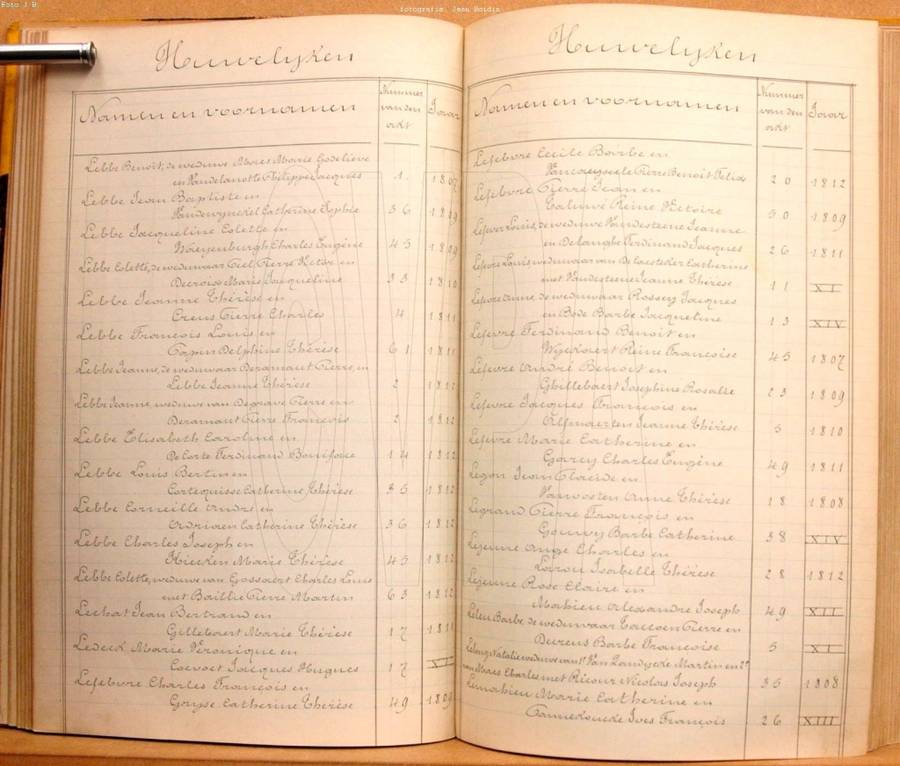 Foto J.B.
fotografie: Jean Boidin
Huwelyken
Namen en voornamen
Nummer van den akt
Jaar
Lebbe Benoît, de weduwe Mores Marie Godelieve
en Vandelanotte Philippe Jacques 1. 1807
Lebbe Jean Baptiste en
Vandewynckel Catherine Sophie 36 1809
Lebbe Jacqueline Colette en
Waeyenburgh Charles Eugène 45 1809
Lebbe Colette, de weduwaar Piere Victor en
Decroix Marie Jacqueline 33 1810
Lebbe Jeanne Thérèse en
Creus Pierre Charles 4 1811
Lebbe François Louis en
Delphine Thérèse 61 1811
Lebbe Jeanne, de weduwaar Deramaut Pierre, en
Lebbe Jeanne Thérèse 2 1812
Lebbe Jeanne, weduwe van Degrave Pierre en
Deramaut Pierre François 2 1812
Lebbe Elisabeth Caroline en
De Corte Ferdinand Boniface 14 1812
Lebbe Louis Bertin en
Cortequisse Catherine Thérèse 35 1812
Lebbe Corneille André en
Adriaen Catherine Thérèse 36 1812
Lebbe Charles Joseph en
Kieken Marie Thérèse 45 1812
Lebbe Colette, weduwe van Gossaert Charles Louis
met Baillie Pierre Martin 63 1812
Lechat Jean Bertrand en
Gillebaert Marie Thérèse 17
Ledeck Marie Véronique en
Coevoet Jacques Hugues 17
Lefebvre Charles François en
Gryse Catherine Thérèse 49 1809
Huwelyken
Namen en voornamen
Nummer van den akt
Jaar
Lefebvre Cecile Barbe en
Pierre Benoît Felix 20 1812
Lefebvre Pierre Jean en
Caluwé Reine Victoire 50 1809
Lefever Louis, de weduwe Vandesteene Jeanne
en Delanghe Ferdinand Jacques 26 1811
Lefever Louis weduwaar van De Coesteker Catherine
met Vandesteene Jeanne Thérèse 11 XI
de weduwaar Rossey Jacques
en Bode Barbe Jacqueline 13 XIV
Lefevre Ferdinand Benoit en
Wyckaert Reine Françoise 45 1807
Lefevre André Benoit en
Ghillebaert Josephine Rosalie 23 1809
Lefevre Jacques François en
Jeanne Thérèse 5 1810
Lefevre Marie Catherine en
Garey Charles Eugène 49 1811
Legon Jean Claude en
Vanoosten Anne Thérèse 18 1808
Legrand Pierre François en
Gourvy Barbe Catherine 38 XIV
Lejeune Ange Charles en
Isabelle Thérèse 28 1812
Lejeune Rose Claire en
Mahieu Alexandre Joseph 49 XII
Leleu Barbe de weduwaar Taccoen Pierre en
Decreus Barbe Françoise 5 XI
Natalie weduwe van 1° Van Landycke Martin en 2°
van Moses Charles met Ricour Nicolas Joseph 35 1808
Lemahieu Marie Catherine en
Ives François 26 XIII